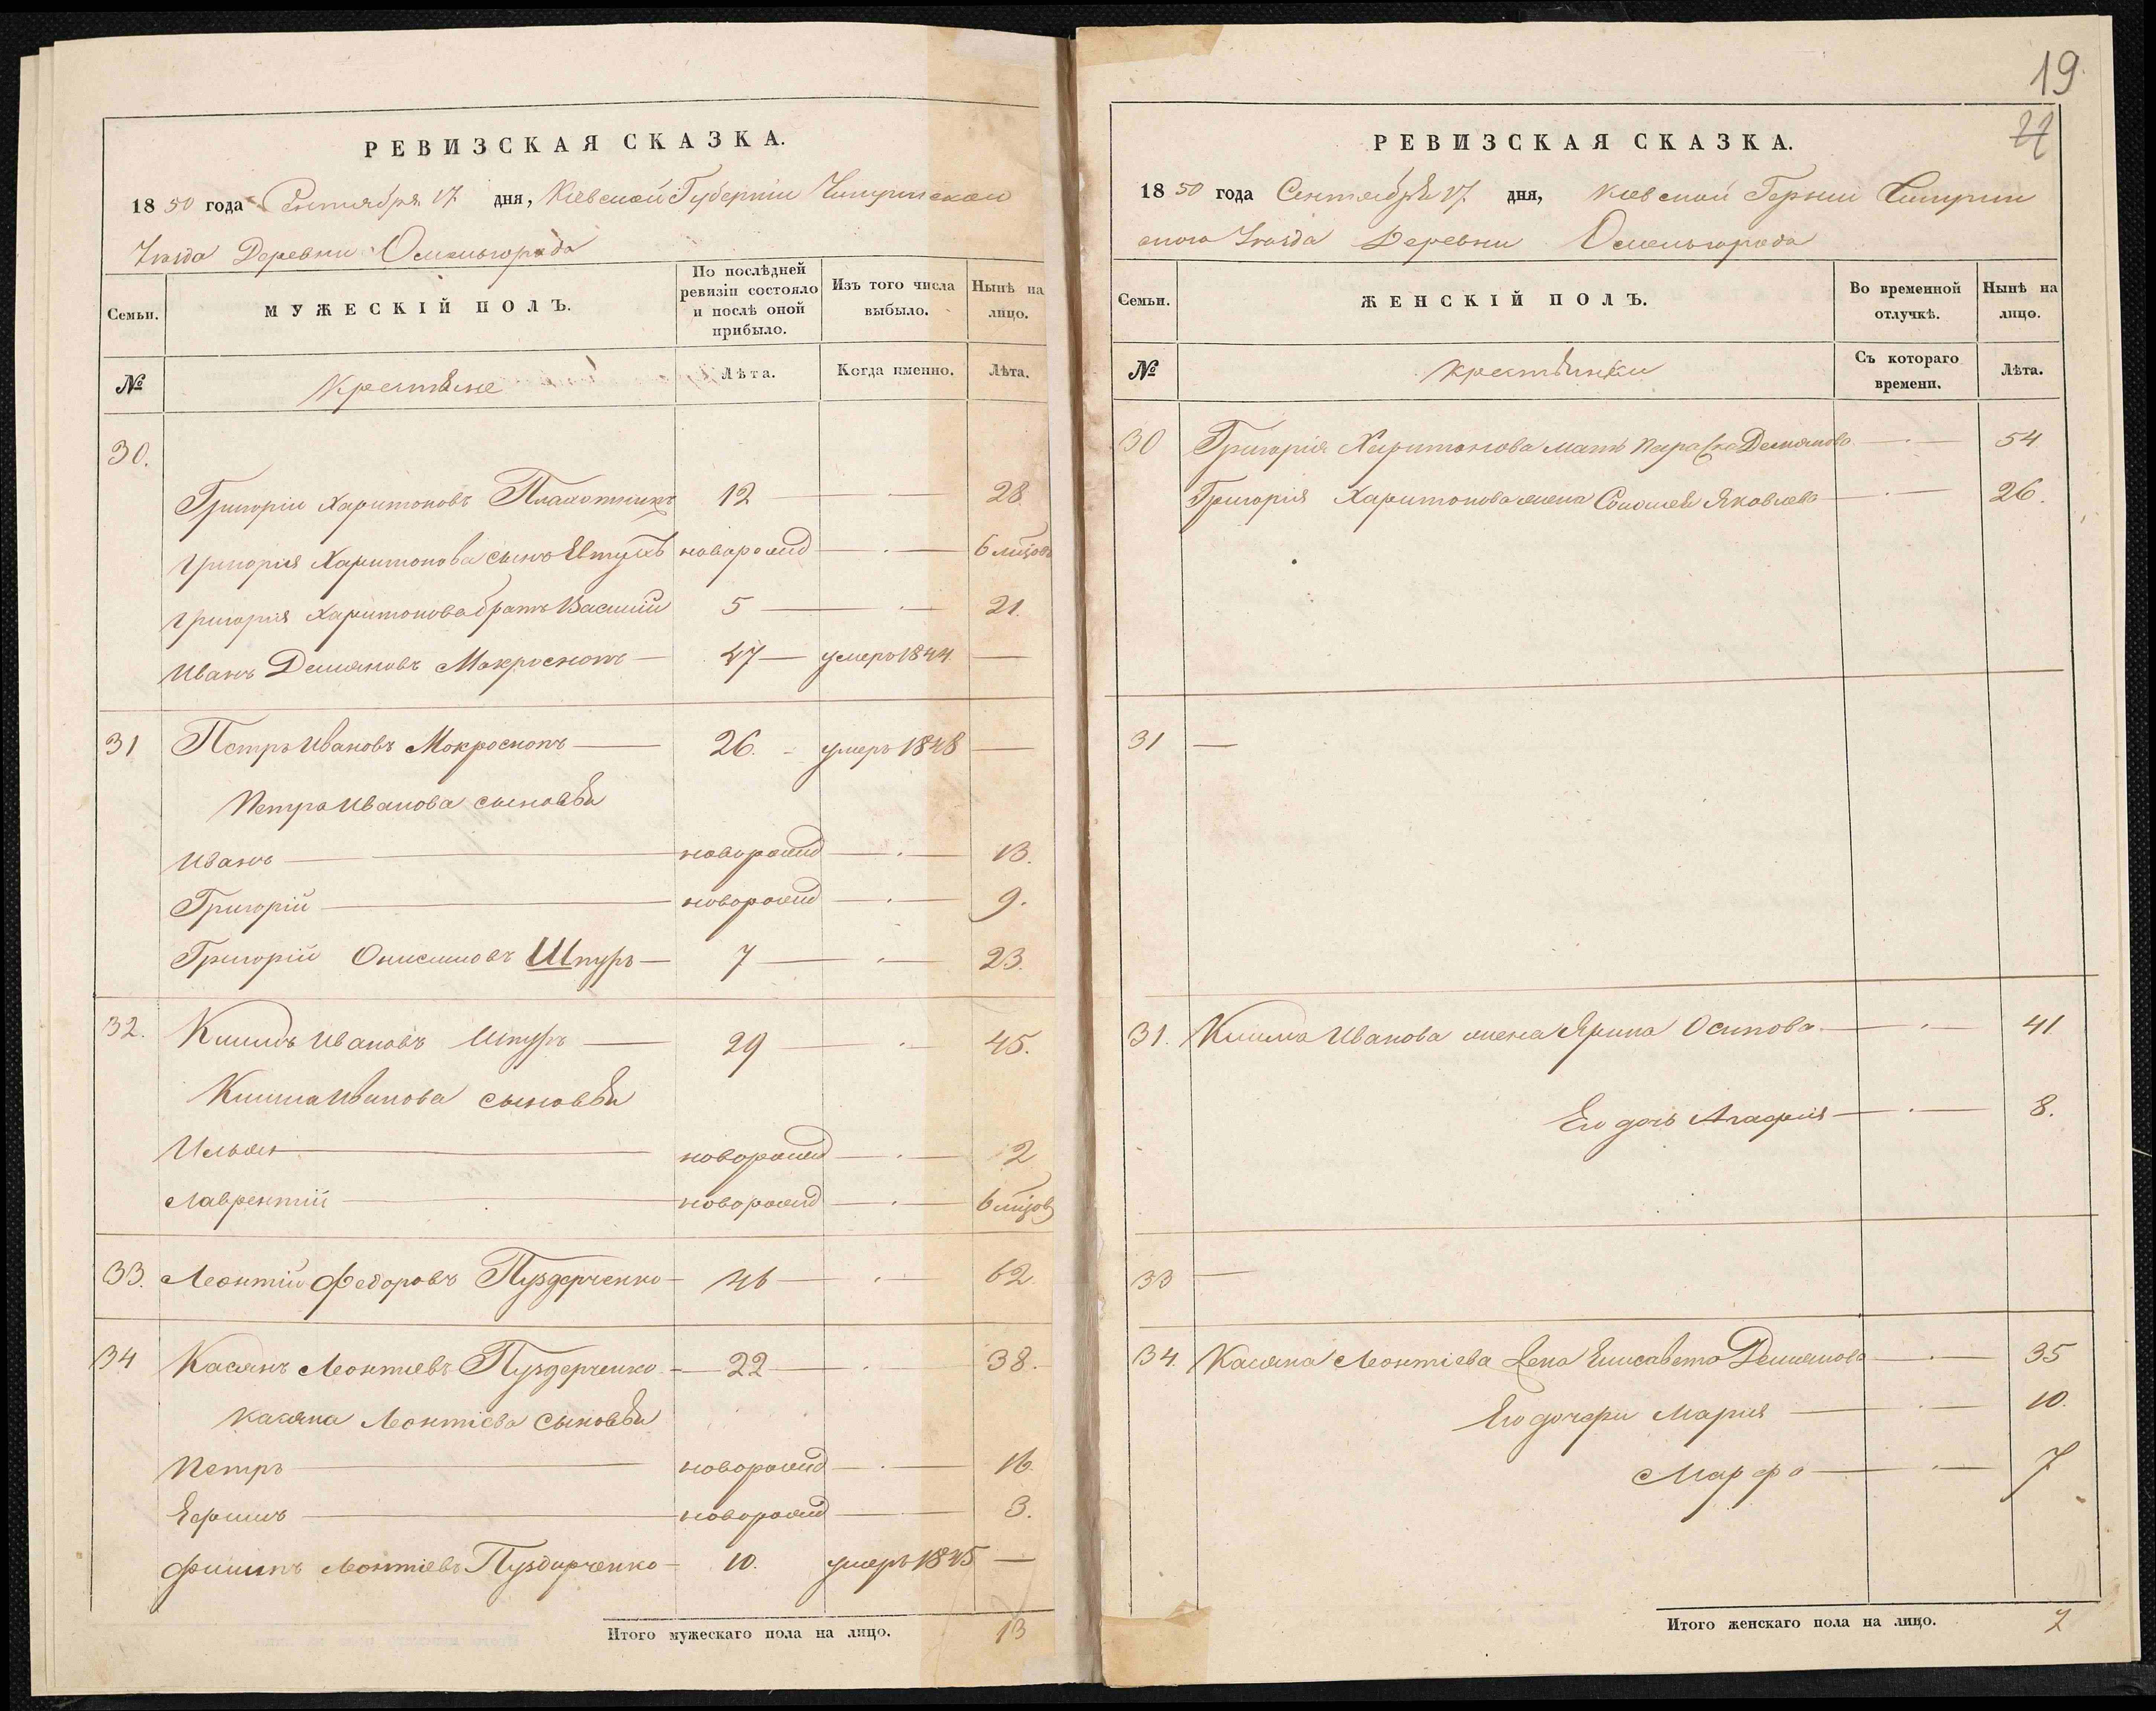 РЕВИЗСКАЯ СКАЗКА.
1850 года Сентября 17 дня, Кіевской Губерніи Чигиринскаго
Уезда Деревни Осиньгорада
Семьи. МУЖЕСКІЙ ПОЛЪ. По послѣдней ревизіи состояло и послѣ оной прибыло. Изъ того числа выбыло. Нынѣ на лицо.
№ Крестьяне Лѣта. Когда именно. Лѣта.
30.
Григорій Харитоновъ Плахотникъ 12 — · — 28
Григорія Харитонова сынъ Евтухъ новорожд — · — 6 мѣцов
Григорія Харитонова братъ Василій 5 — · — 21.
Иванъ Демяновъ Мокроснопъ — 47 — умеръ 1844 —
31 Петръ Ивановъ Мокроснопъ — 26. умеръ 1848 —
Петра Иванова сыновья
Иванъ — новорожд — · — 13.
Григорій — новорожд — · — 9.
Григорій Онисимовъ Шпуръ — 7 — · — 23.
32. Климъ Ивановъ Шпуръ — 29 — · — 45.
Клима Иванова сыновья
Илья — новорожд — · — 2
Лаврентій — новорожд — · — 6 мѣцов
33. Леонтій Федоровъ Пуздерченко — 46 — · — 62.
34 Касянъ Леонтіевъ Пуздерченко — 22 — · 38.
Касяна Леонтіева сыновья
Петръ — новорожд — · — 16
Ефимъ — новорожд — · — 3.
Филипъ Леонтіевъ Пуздирченко — 10. умеръ 1845 —
Итого мужескаго пола на лицо. 13
19
РЕВИЗСКАЯ СКАЗКА.
1850 года Сентября 17. дня, Кіевской Гернии Чигирин
скаго Уезда Деревни Осиньгорада
Семьи. ЖЕНСКІЙ ПОЛЪ. Во временной отлучкѣ. Нынѣ на лицо.
№ Крестьянки Съ котораго времени. Лѣта.
30 Григорія Харитонова мать Параска Демянова — · — 54
Григорія Харитонова жена Яковлева — · — 26.
31 —
31. Клима Иванова жена Ярина Осипова — · — 41.
Его дочь Агафія — · — 8.
33 —
34. Касяна Леонтіева жена Елисавета Демянова — · — 35
Его дочери Марія — · — 10.
Марфа — · — 7
Итого женскаго пола на лицо. 7